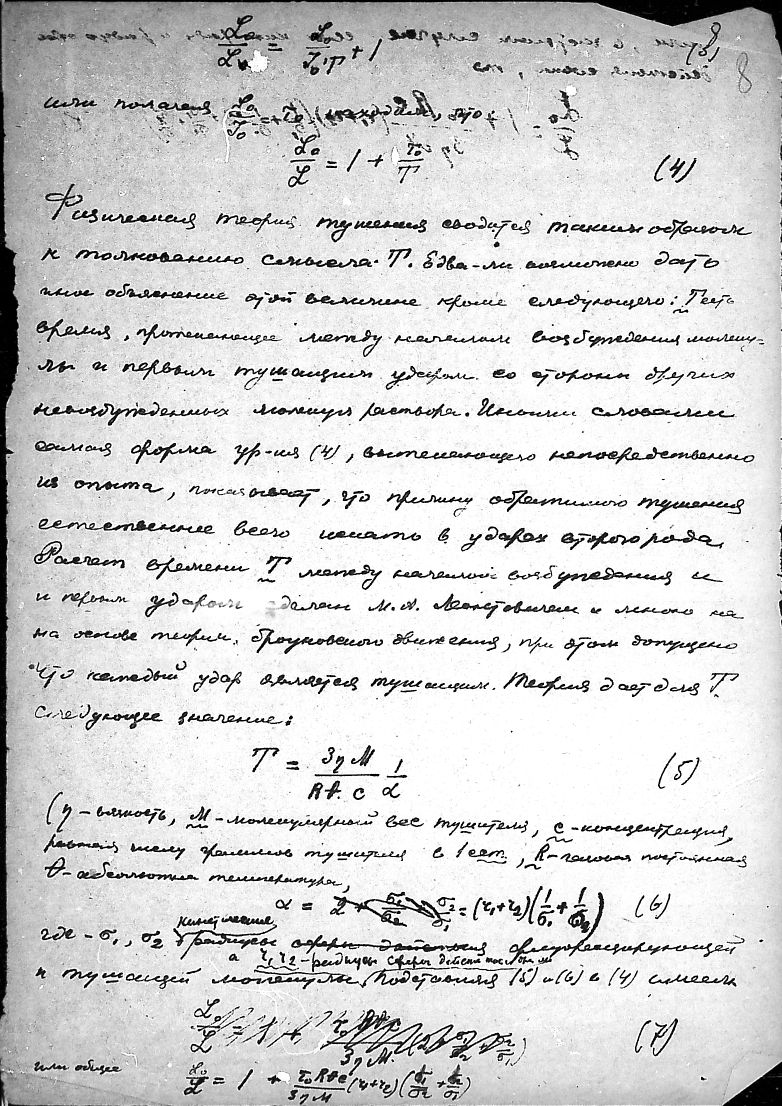 L₀/L = L₀/(I₀ T) + 1
8
или полагая L₀/I₀ = τ₀ находим, что
L₀/L = 1 + τ₀/T (4)
Физическая теория тушения сводится таким образом
к толкованию смысла T. Едва-ли возможно дать
иное объяснение этой величине кроме следующего: T есть
время, протекающее между началом возбуждения молеку-
лы и первым тушащим ударом со стороны других
невозбужденных молекул раствора. Иными словами
самая форма ур-ия (4), вытекающего непосредственно
из опыта, показывает, что причину обратимого тушения
естественнее всего искать в ударах второго рода.
Расчет времени T между началом возбуждения и
и первым ударом сделан М.А. Леонтовичем и мною на
на основе теории броуновского движения, при этом допущено
что каждый удар является тушащим. Теория дает для T
следующее значение:
T = 3ηM/(Rθ. c) 1/α (5)
(η - вязкость, M - молекулярный вес тушителя, c - концентрация,
равная числу граммов тушителя в 1 см³, R - газовая постоянная
θ - абсолютная температура,
α = 2 + σ₁/σ₂ + σ₂/σ₁ = (r₁+r₂)(1/σ₁ + 1/σ₂) (6)
кинетические
где - σ₁, σ₂ радиусы сферы действия флуоресцирующей
а r₁ r₂ - радиусы сферы действия
и тушащей молекулы. Подставляя (5) и (6) в (4) имеем
L₀/L = 1 + τ₀Rθc/3ηM (2 + σ₁/σ₂ + σ₂/σ₁) (7)
или общее
L₀/L = 1 + τ₀Rθc/3ηM (r₁+r₂)